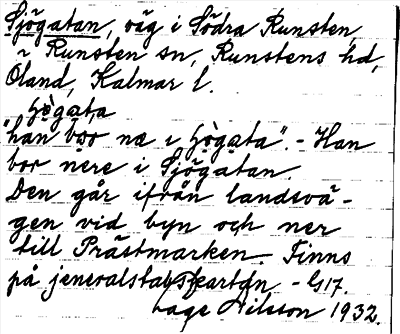 Sjögatan, väg i Södra Runsten,
i Runsten sn, Runstens hd,
Öland, Kalmar l.
"han bor næ i
Han
bor nere i Sjögatan.
Den går ifrån landsvä-
gen vid byn och ner
till Prästmarken. Finns
på jeneralstabskartan - G17.
Lage Nilsson 1932.